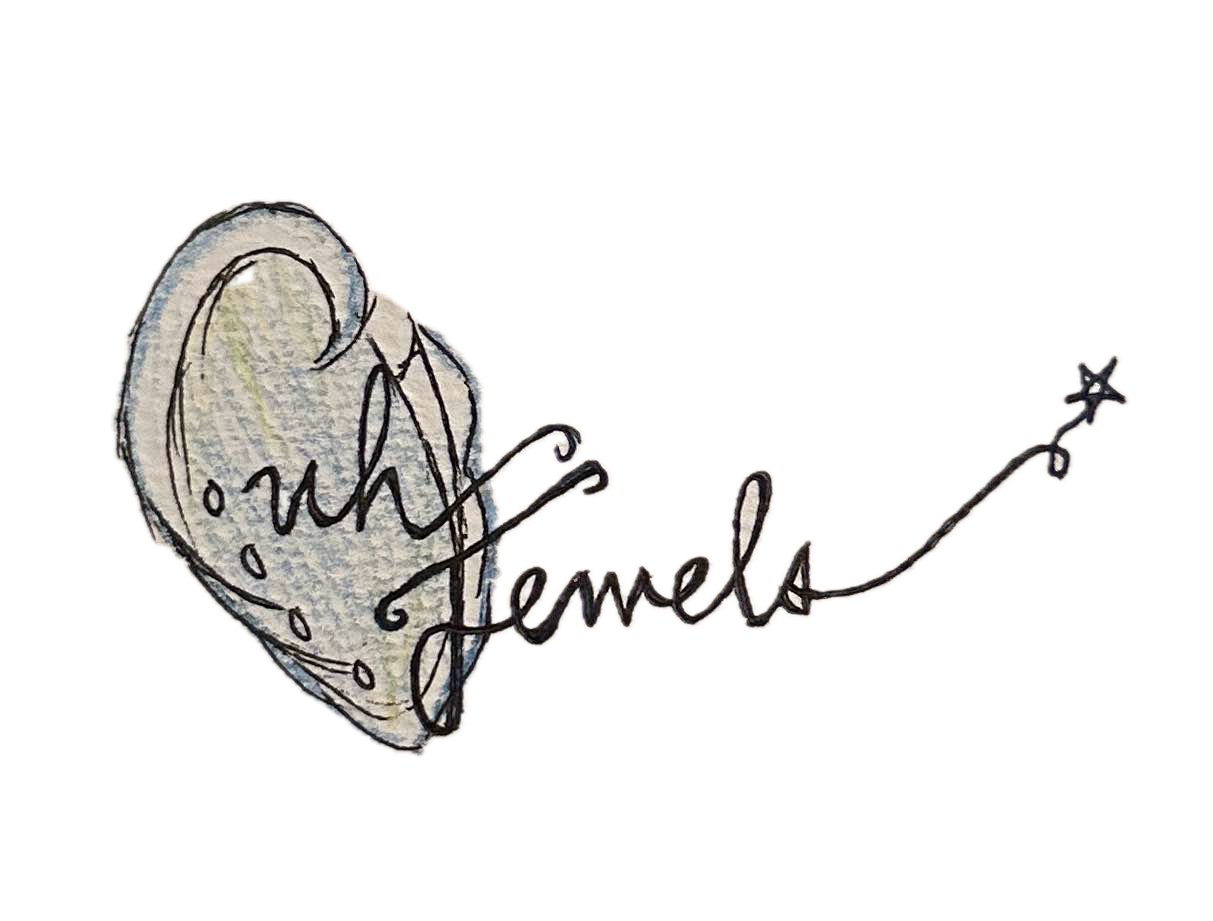 uh
Jewels